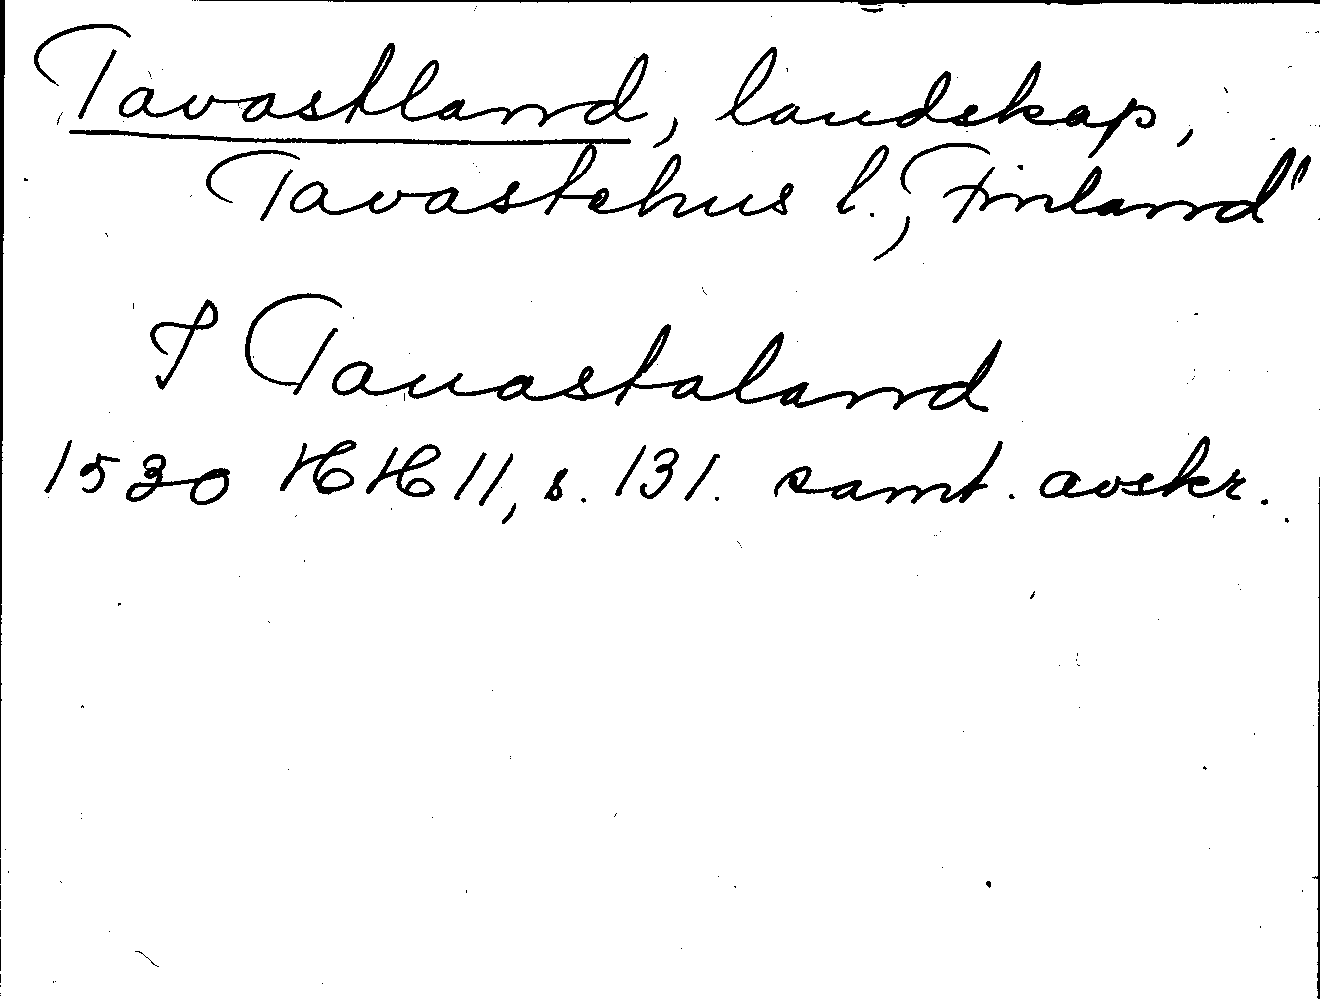 Tavastland, landskap,
Tavastehus l., Finland"
J Tauastaland
1530 HH 11, s. 131. samt. avskr.